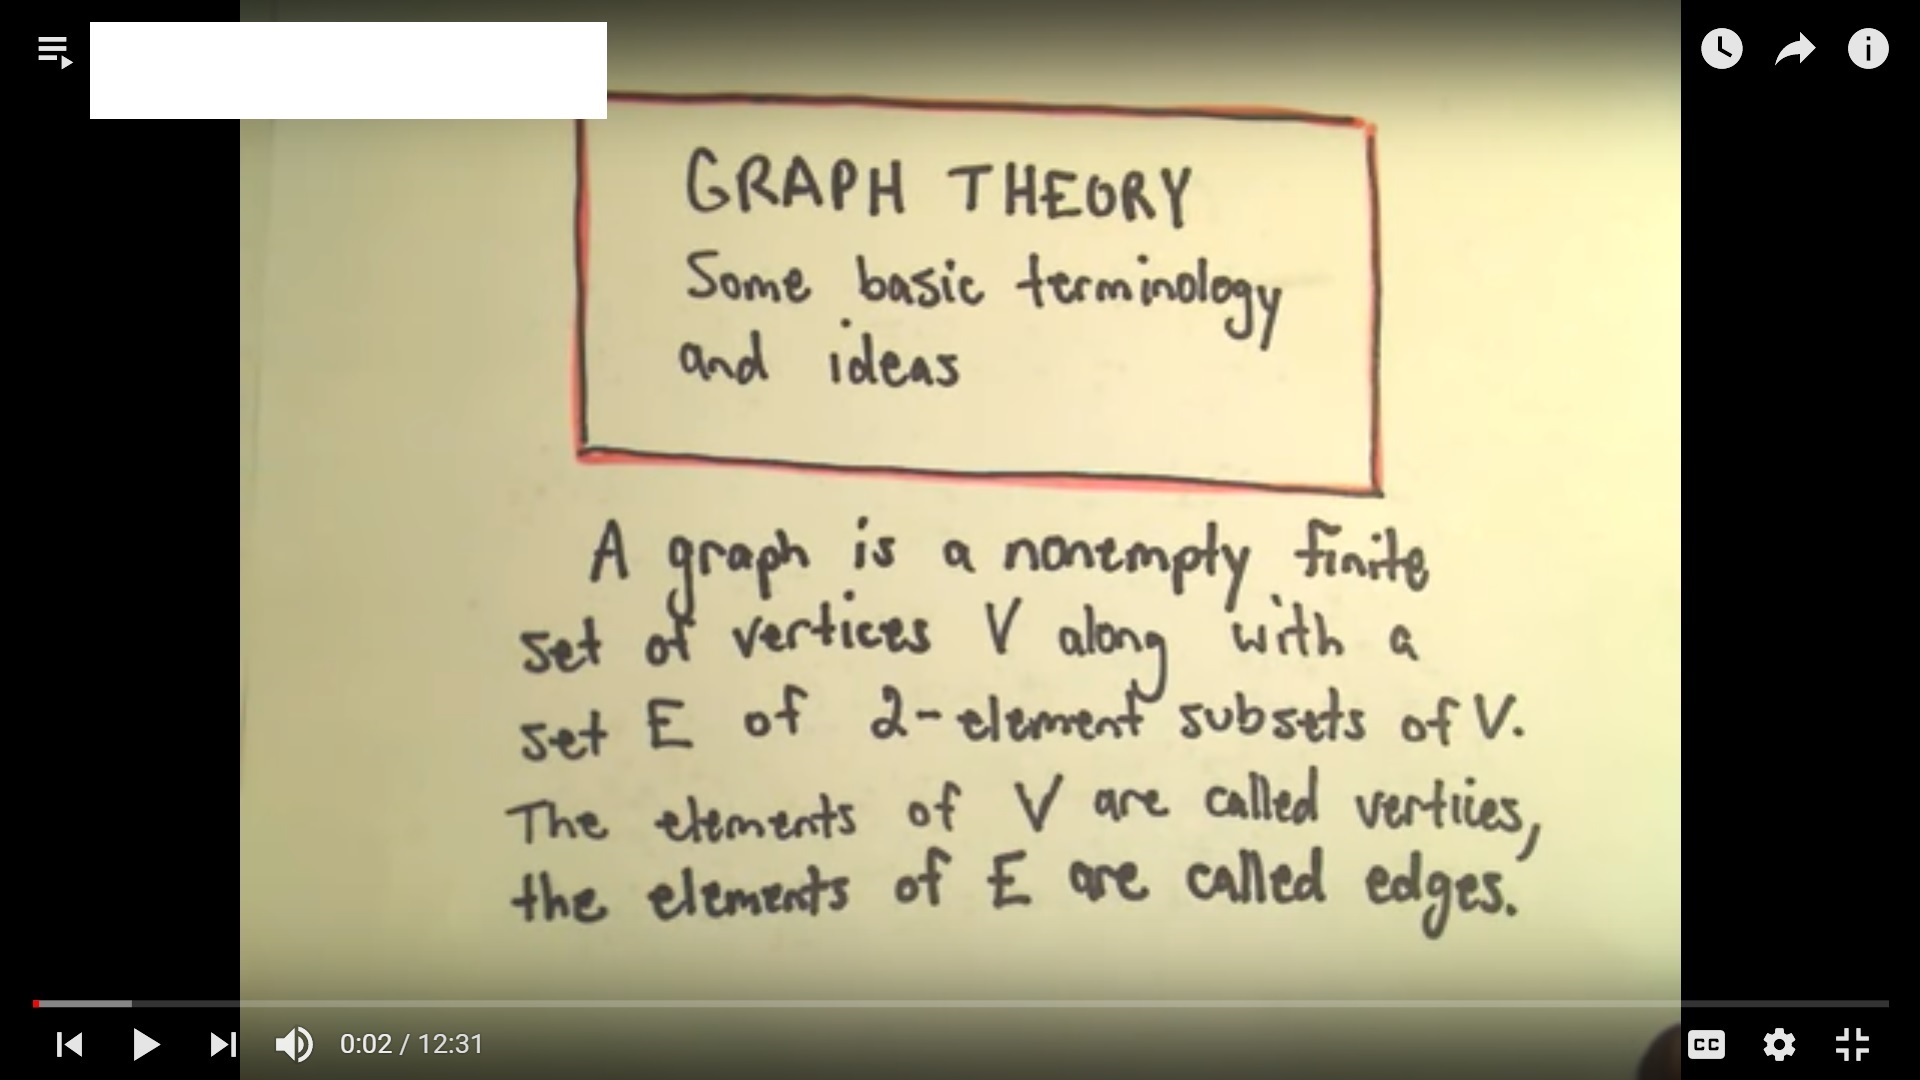 GRAPH THEORY
Some basic terminology
and ideas
A graph is a nonempty finite
set of vertices V along with a
set E of 2-element subsets of V.
The elements of V are called vertiies,
the elements of E are called edges.
0:02 / 12:31
CC